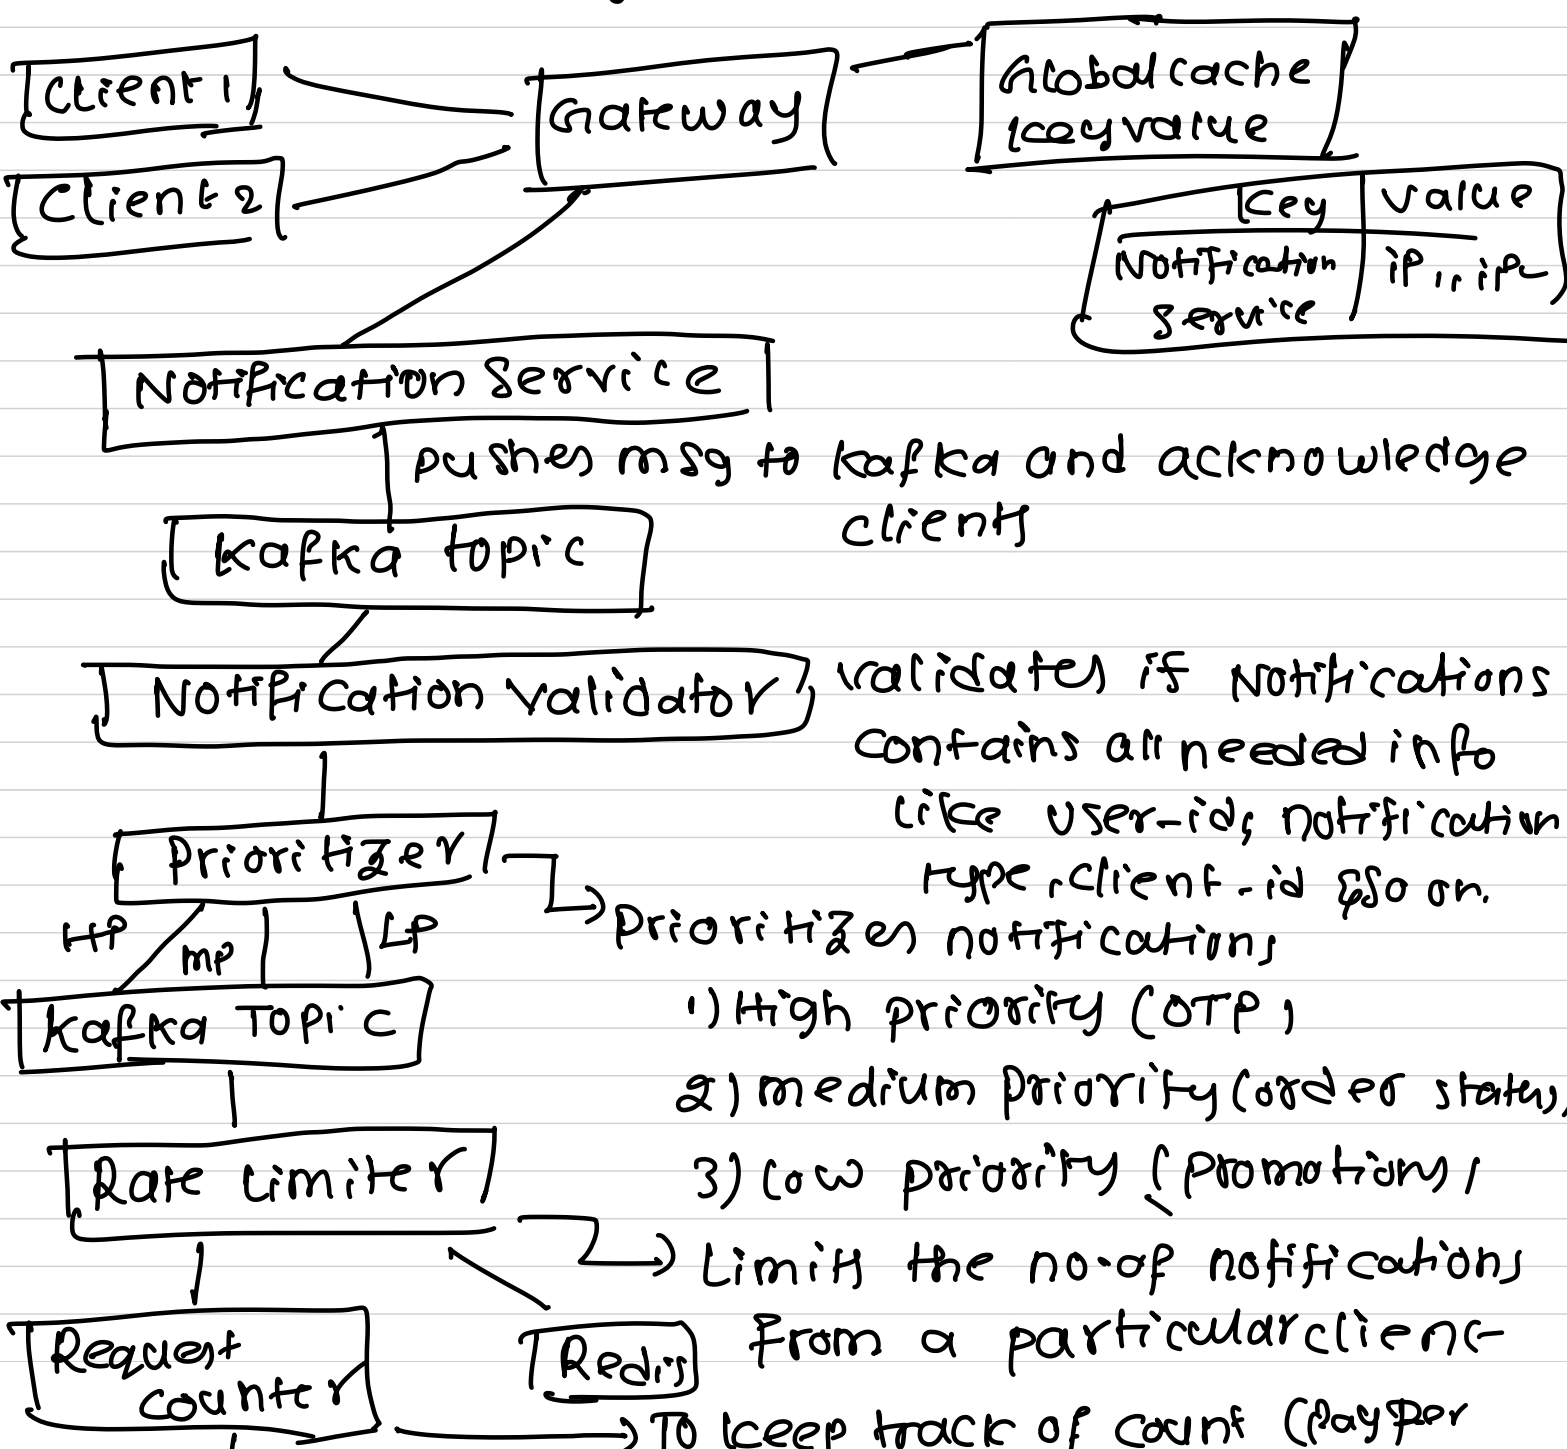 Client 1
Gateway
Global cache
key value
Client 2
Key value
Notification ip1, ip2
Service
Notification Service
pushes msg to kafka and acknowledge
clients
Kafka topic
Notification validator
validates if Notifications
contains all needed info
like user-id, notification
type, client-id & so on.
Prioritizer
HP
MP
LP
Prioritizes notifications
Kafka Topic
1) High priority (OTP)
2) medium priority (order status)
3) low priority (promotions)
Rate limiter
Limits the no.of notifications
from a particular client
Request
counter
Redis
To keep track of count (Pay Per